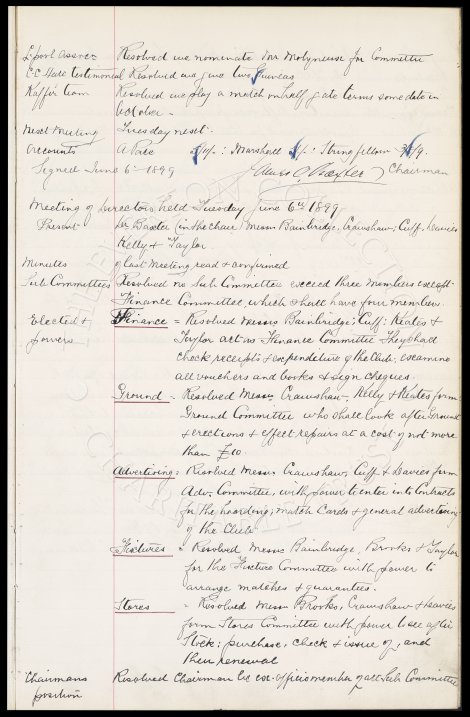 L'pool Assocn Resolved we nominate Mr Molyneux for Committee
CC Hare testimonial Resolved we give two Guineas
Kaffir team Resolved we play a match on half gate terms some date in
October.
Next Meeting Tuesday next.
Accounts A Pate 5/11/- : Marshall 5/- : Stringfellow 3/9.
Signed June 6th 1899 James C. Baxter Chairman
Meeting of Directors held Tuesday June 6th 1899
Present Dr Baxter (in the chair) Messrs Bainbridge, Crawshaw, Cuff, Davies
Kelly & Taylor
Minutes of last meeting read & confirmed
Sub Committees Resolved no Sub Committee exceed three members except
Finance Committee, which shall have four members.
Elected & Finance = Resolved Messrs Bainbridge; Cuff; Keates &
powers Taylor act as Finance Committee They shall
check receipts & expenditure of the Club, examine
all vouchers and books & sign cheques.
Ground - Resolved Messrs Crawshaw, Kelly & Keates form
Ground Committee who shall look after Ground
& erections & effect repairs at a cost of not more
than £10.
Advertising: Resolved Messrs Crawshaw, Cuff & Davies form
Adv. Committee, with power to enter into Contracts
for the hoarding, match Cards & general advertising
of the Club
Fixtures = Resolved Messrs Bainbridge, Brooks & Taylor
for the Fixture Committee with power to
arrange matches & guarantees.
Stores = Resolved Messrs Brooks, Crawshaw & Davies
form Stores Committee with power to see after
Stock: purchase, check & issue of, and
their renewal
Chairmans Resolved Chairman be ex-officio member of all Sub Committees
position